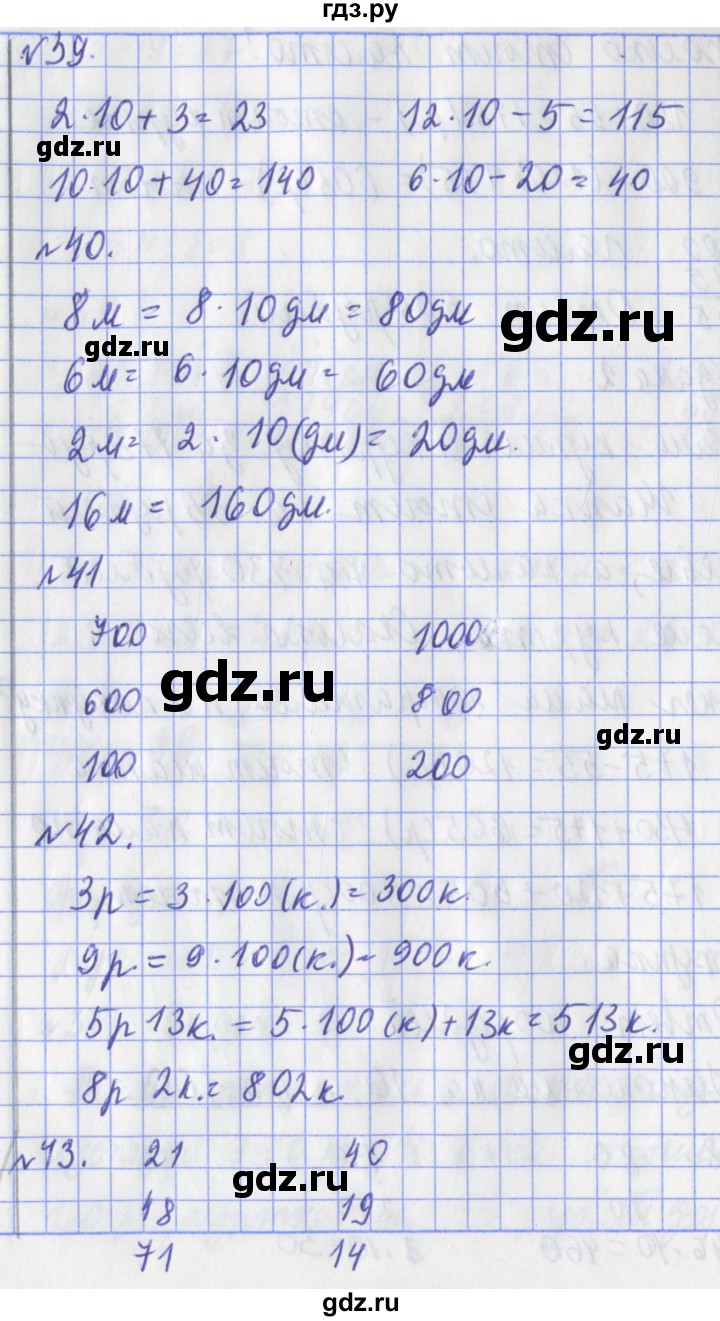 гдз.ру
№39.
2·10+3=23 12·10-5=115
gdz.ru
gdz.ru
10·10+40=140 6·10-20=40
№40.
8м = 8·10дм = 80дм
gdz.ru
gdz.ru
6м= 6·10дм= 60дм
2м= 2·10(дм)= 20дм.
16м = 160дм.
№41
700 1000
gdz.ru
600 800
gdz.ru
100 200
№42.
3р = 3·100(к.)=300к.
9р.= 9·100(к.)= 900к.
5р 13к. = 5·100(к)+13к=513к.
gdz.ru
8р 2к.= 802к.
№43. 21 40
gdz.ru
48 19
71 14
gdz.ru